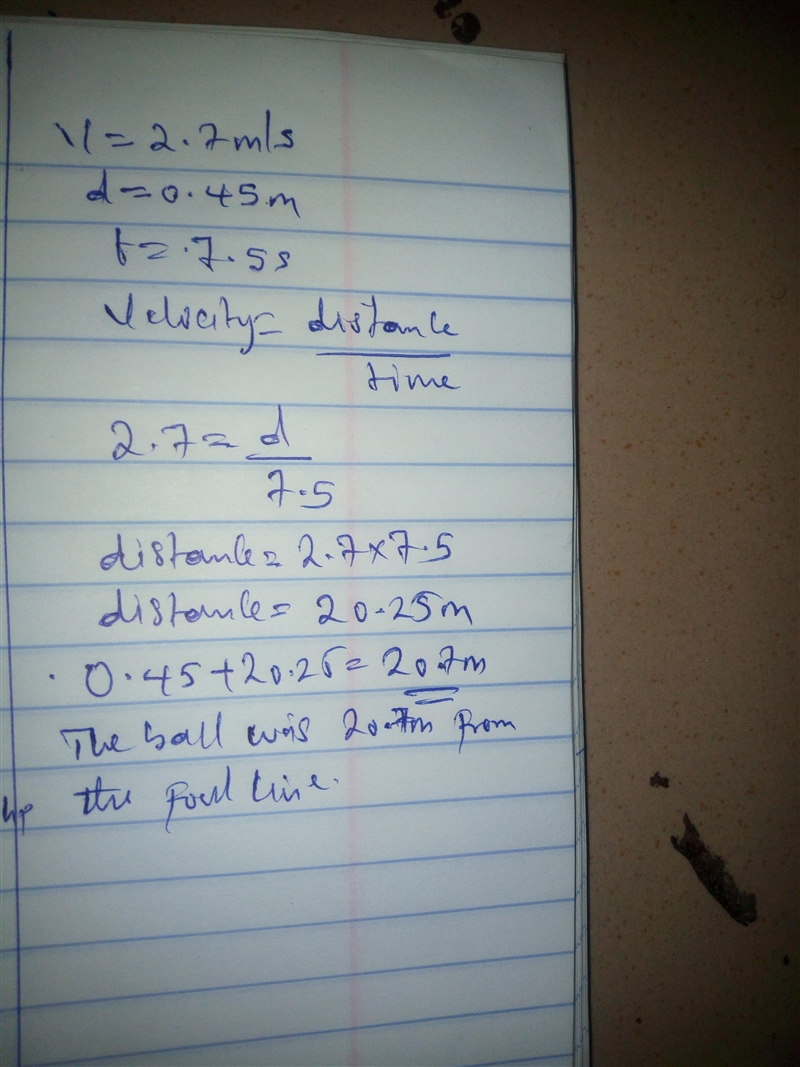 V = 2.7m/s
d = 0.45m
t = .7.5s
Velocity = distance
time
2.7 = d
7.5
distance = 2.7x7.5
distance = 20.25m
. 0.45 + 20.25 = 20.7m
The ball was 20.7m from
the foul line.